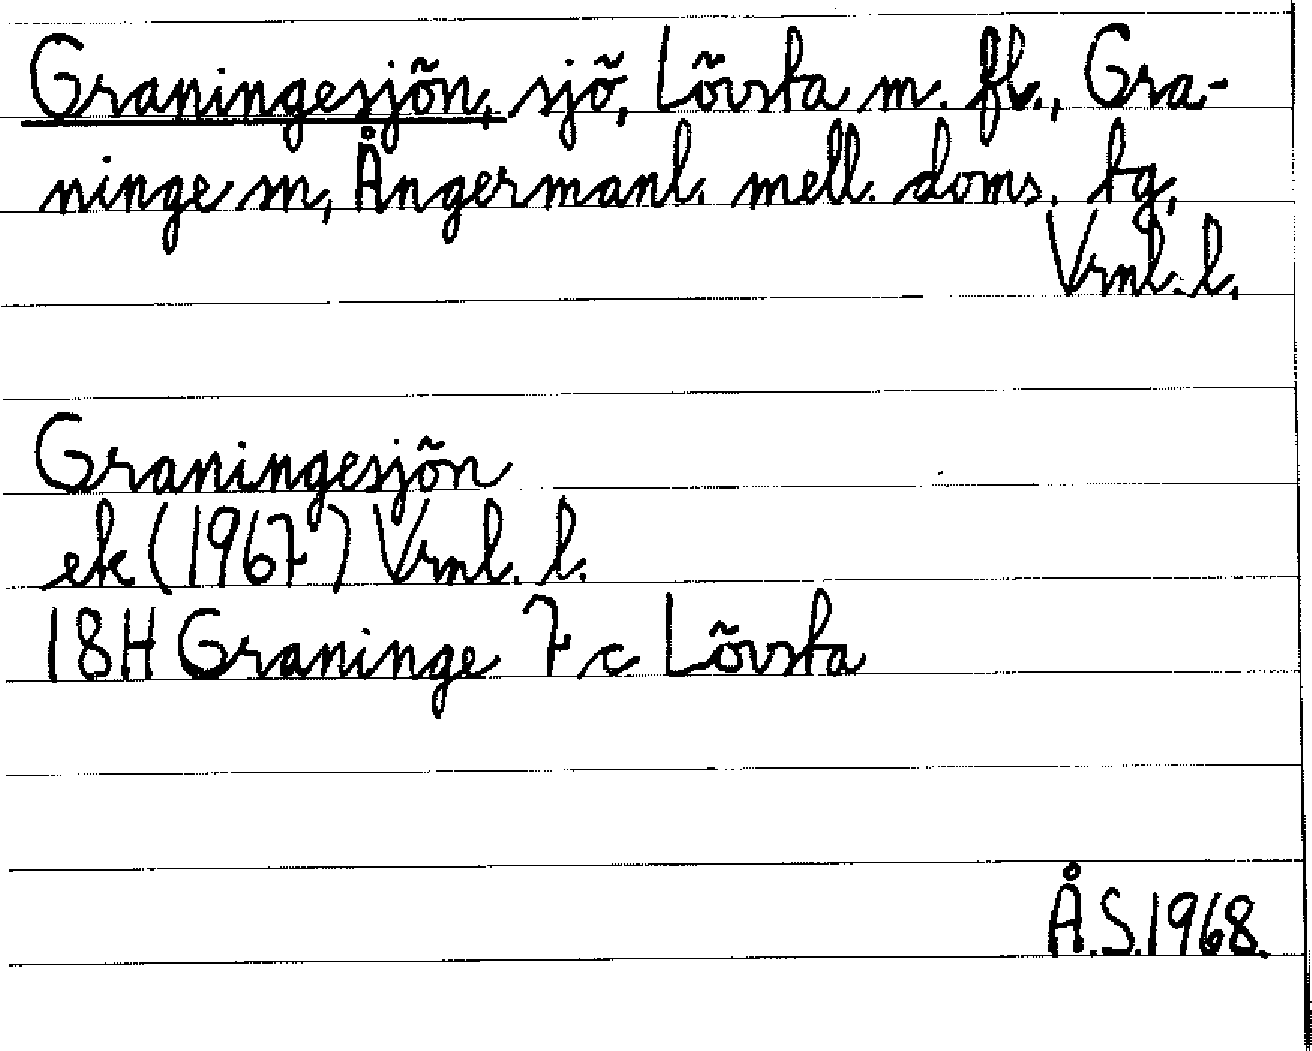 Graningesjön, sjö, Lövsta m. fl., Gra-
ninge sn, Ångermanl. mell. doms. tg,
Vrnl. l.
Graningesjön
ek (1967) Vrnl. l.
18H Graninge 7c Lövsta
Å.S.1968.